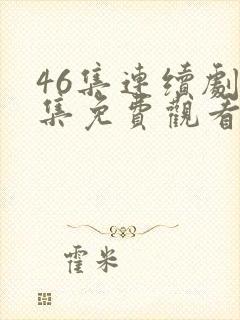 46集連續劇
集免費觀看
霍米